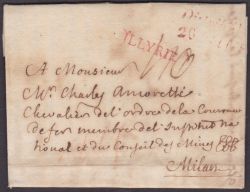 ILLYRIE
A Monsieur
Mr. Charles Amoretti
Chevalier de l'ordre de la Couronne
de fer membre de l'Institut na
tional et du Conseil des Mines
Milan